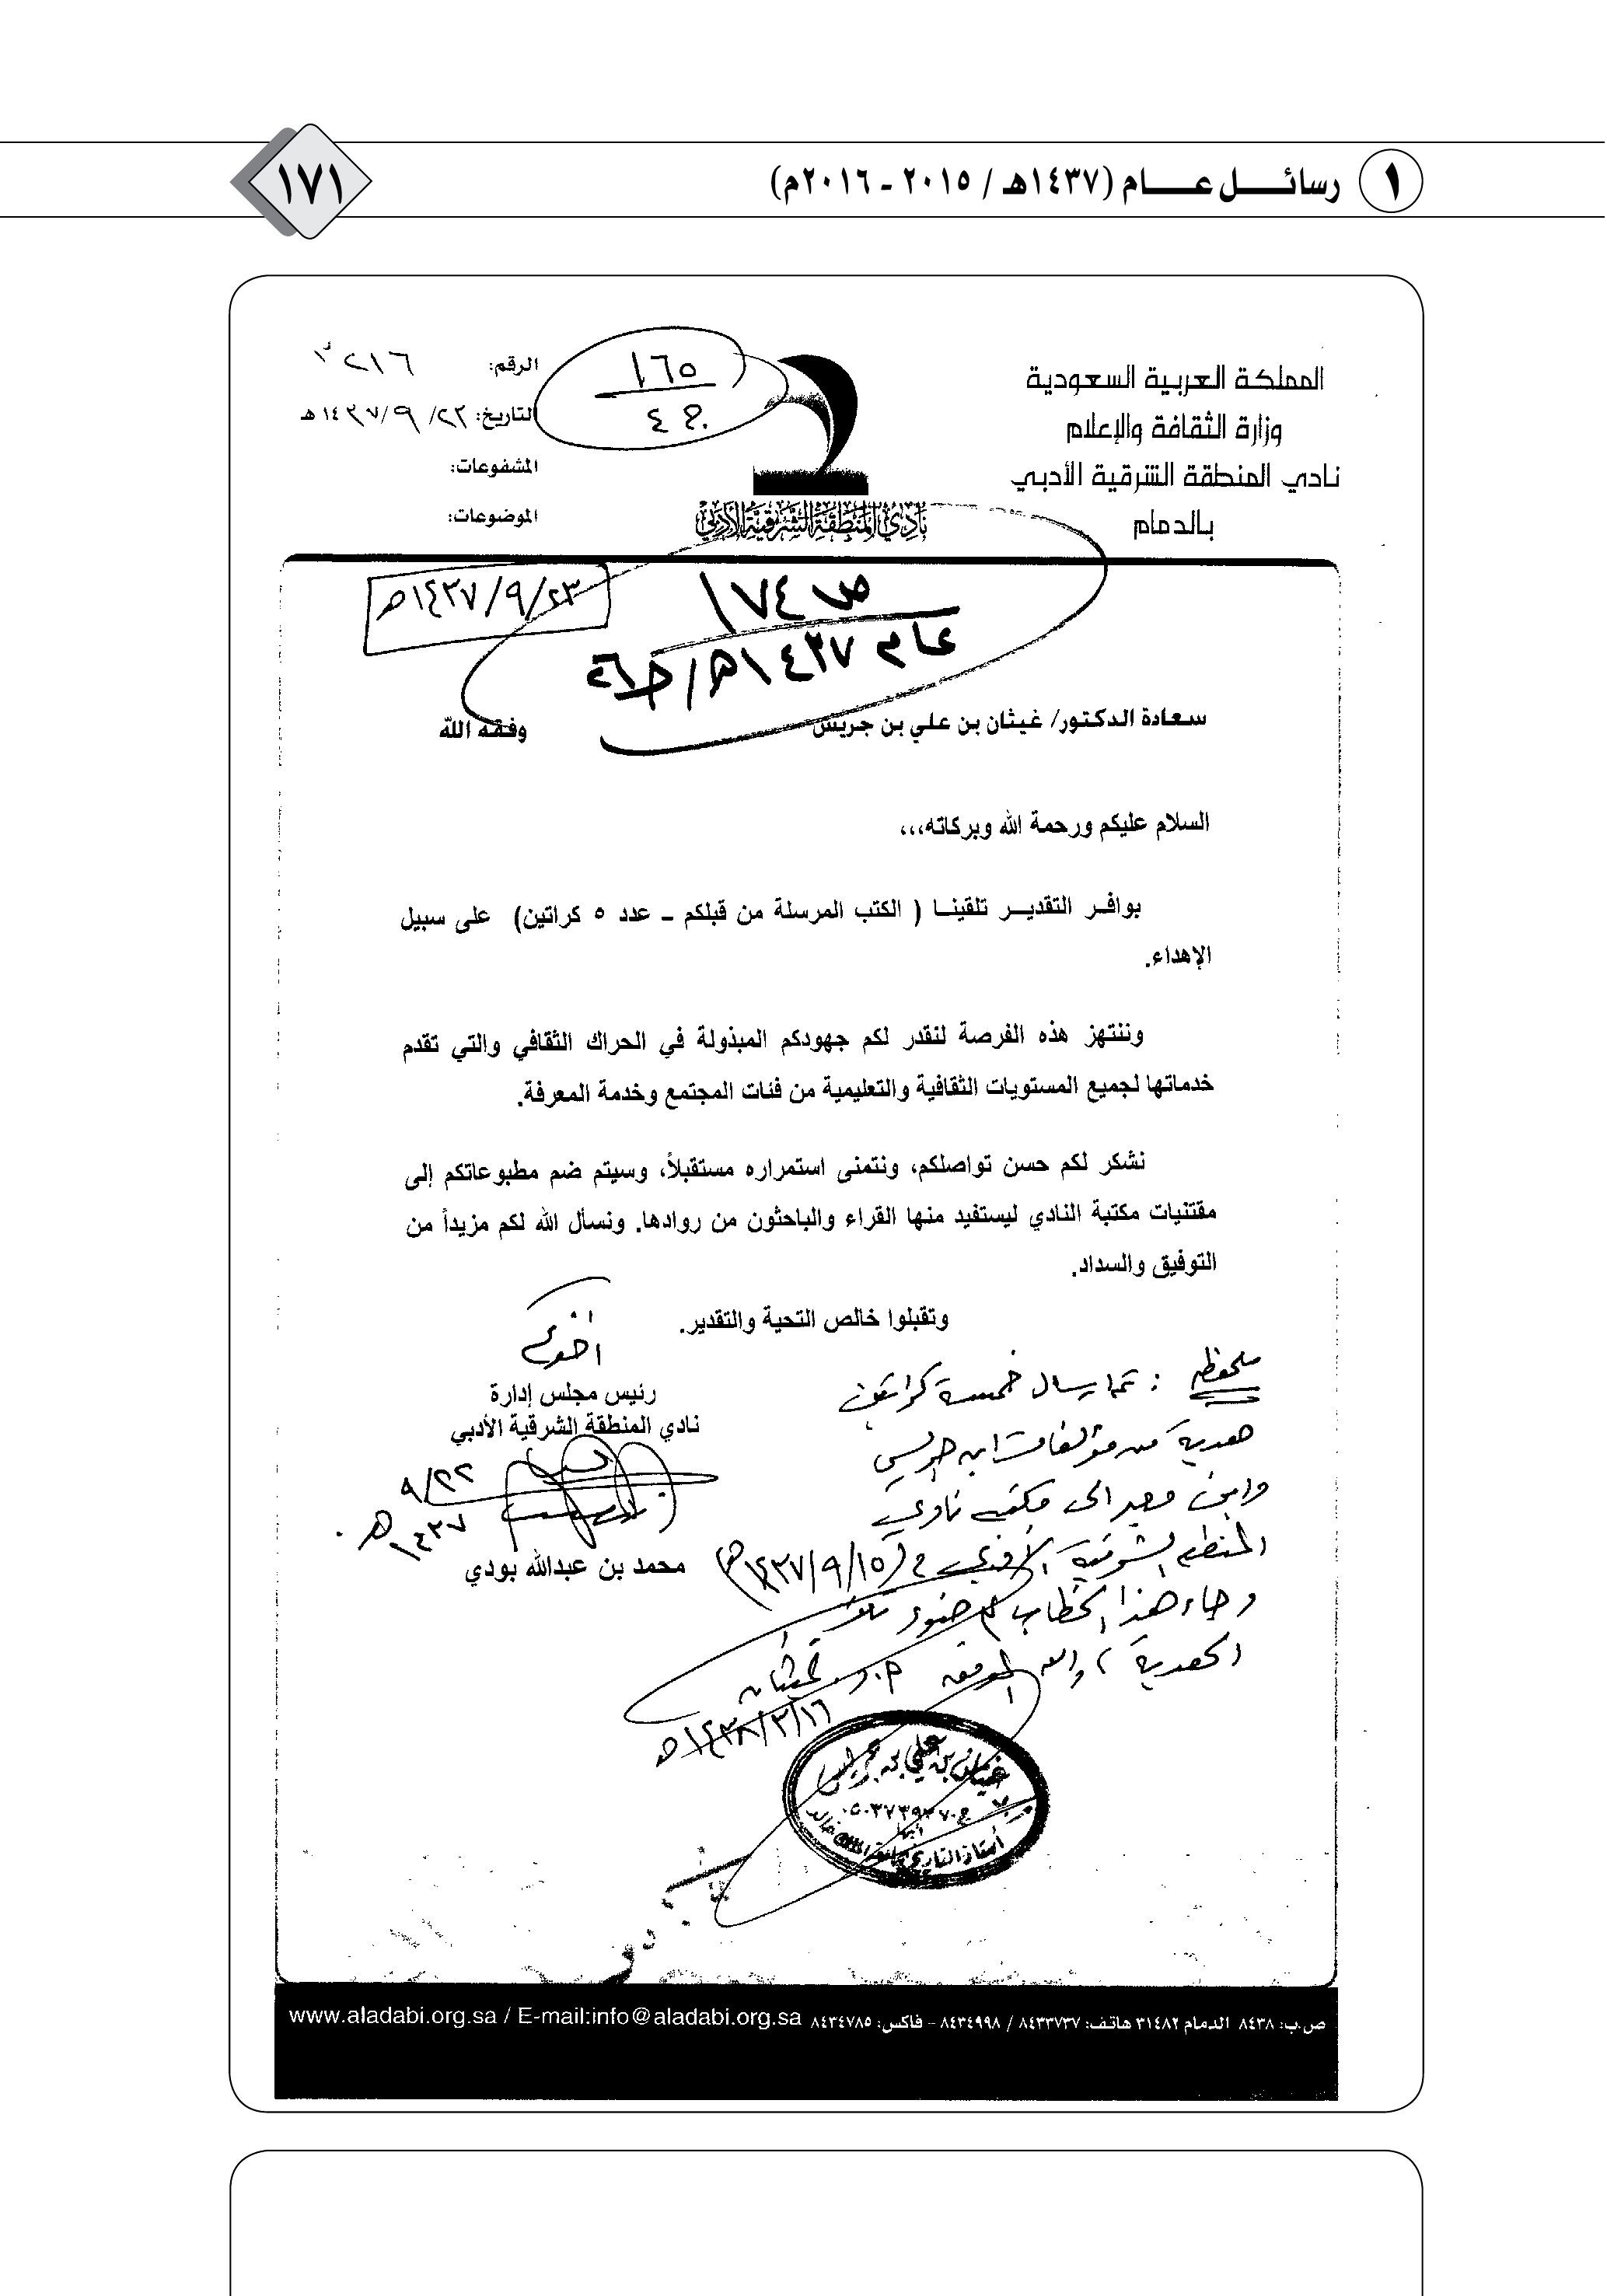 ١ رسائـــل عـــام (١٤٣٧هـ / ٢٠١٥ ـ ٢٠١٦م)
١٧١
المملكة العربية السعودية
وزارة الثقافة والإعلام
نادي المنطقة الشرقية الأدبي
بالدمام
نادي المنطقة الشرقية الأدبي
١٦٥
ج ٤
الرقم: ٢١٦
التاريخ: ٢٢/ ٩/ ١٤٣٧هـ
المشفوعات:
الموضوعات:
٢٣/٩/١٤٣٧هـ
ص ١٧٤
عام ١٤٣٧هـ/
سعادة الدكتور/ غيثان بن علي بن جريس وفقه الله
السلام عليكم ورحمة الله وبركاته،،،
بوافـر التقديـر تلقينـا ( الكتب المرسلة من قبلكم – عدد ٥ كراتين) على سبيل
الإهداء.
وننتهز هذه الفرصة لنقدر لكم جهودكم المبذولة في الحراك الثقافي والتي تقدم
خدماتها لجميع المستويات الثقافية والتعليمية من فئات المجتمع وخدمة المعرفة.
نشكر لكم حسن تواصلكم، ونتمنى استمراره مستقبلاً، وسيتم ضم مطبوعاتكم إلى
مقتنيات مكتبة النادي ليستفيد منها القراء والباحثون من روادها. ونسأل الله لكم مزيداً من
التوفيق والسداد.
وتقبلوا خالص التحية والتقدير.
أخوكم
رئيس مجلس إدارة
نادي المنطقة الشرقية الأدبي
٢٢/٩
١٤٣٧هـ
محمد بن عبدالله بودي
ملحوظة : تم إرسال خمسة كراتين
هدية من مؤلفات ابن جريس
إلى مكتبة نادي
المنطقة الشرقية الأدبي في (١٥/٩/١٤٣٧هـ)
وجاء هذا الخطاب في ضوء تلك
الهدية ، والله الموفق أ.د. غيثان
١٦/٣/١٤٣٨هـ
غيثان بن علي بن جريس
ج.٠٥٠٣٧٣٩٣٧٠
أبها
أستاذ التاريخ بجامعة الملك خالد
ص.ب: ٨٤٣٨ الدمام ٣١٤٨٢ هاتف: ٨٤٣٣٧٣٧ / ٨٤٣٤٩٩٨ – فاكس: ٨٤٣٤٧٨٥ www.aladabi.org.sa / E-mail:info@aladabi.org.sa